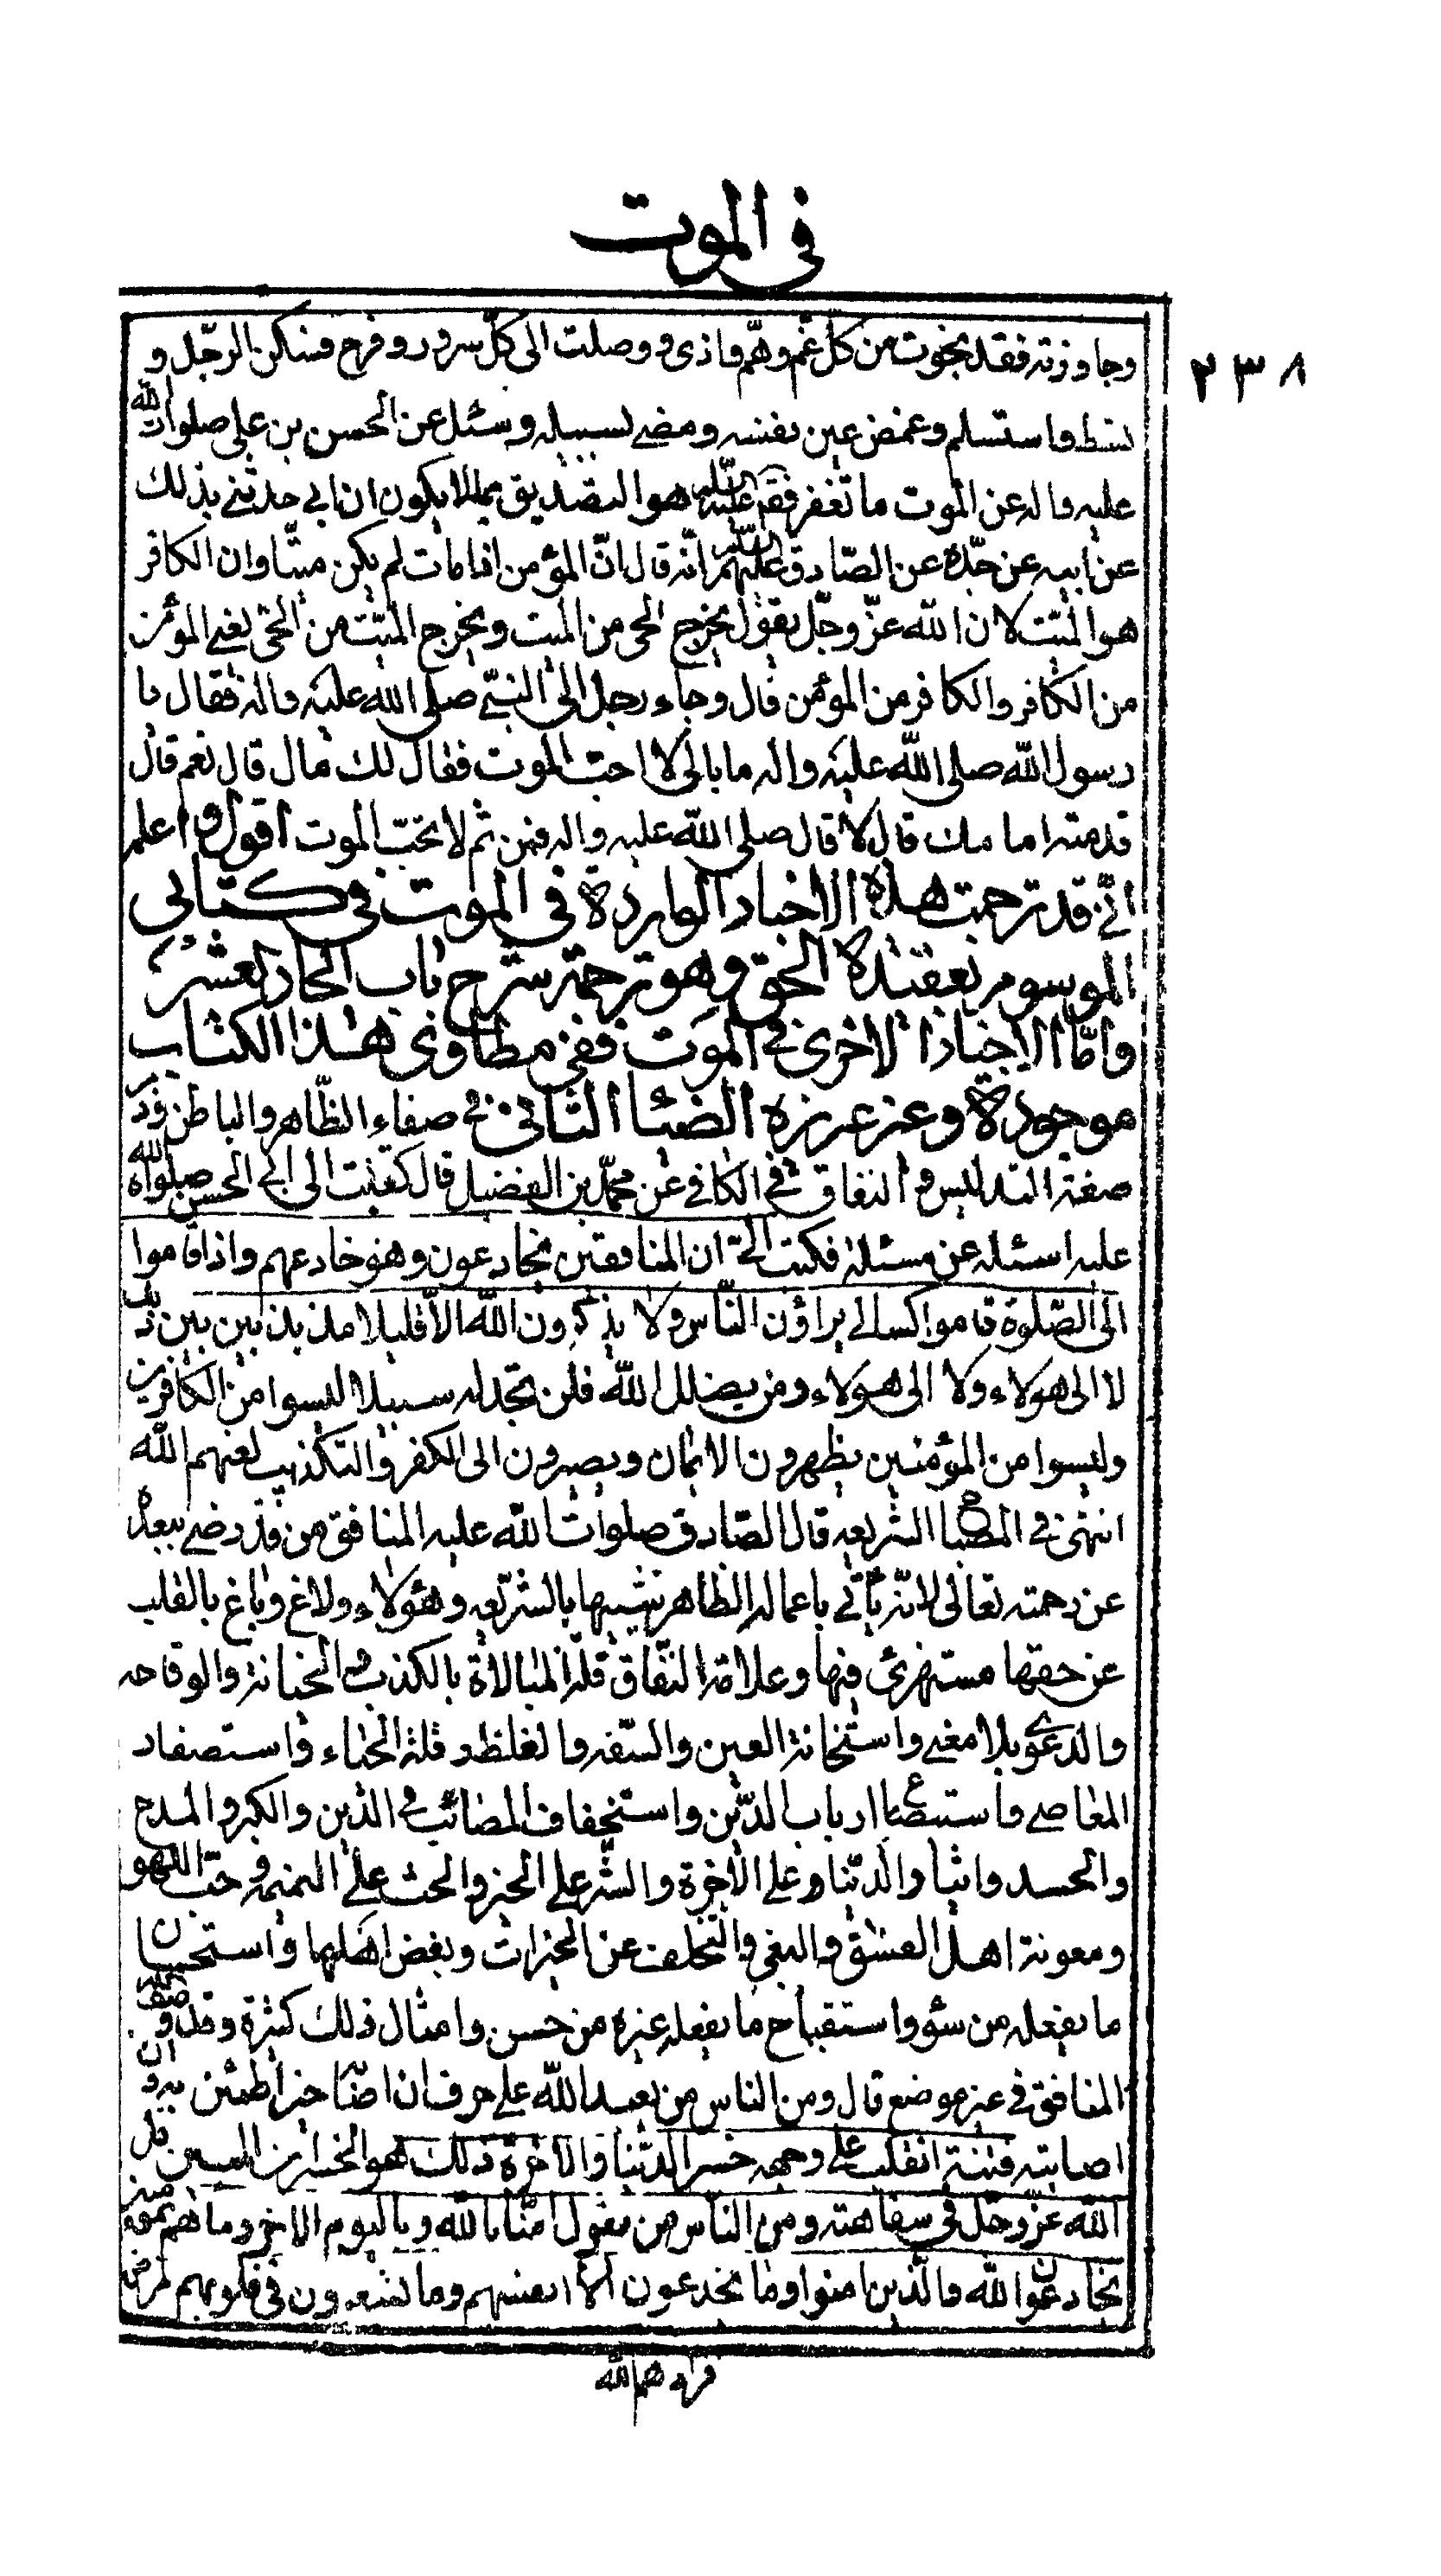 فى الموت
٢٣٨
وجاوزته فقد نجوت من كلّ غمّ وهمّ واذى ووصلت الى كلّ سرور وفرح فسكن الرجّل و
نشط واستسلم وغمض عين نفسه ومضى لسبيله وسئل عن الحسن بن على صلوات الله
عليه واله عن الموت ما تفسيره فقال عليه السلام هو التصديق بما لا يكون ان ابي حدثنى بذلك
عن ابيه عن جدّه عن الصّادق عليهم السلام انّه قال انّ المؤمن اذا مات لم يكن ميتّا وان الكافر
هو الميّت لان الله عزّ وجلّ يقول يخرج الحى من الميت ويخرج الميّت من الحىّ يعنى المؤمن
من الكافر والكافر من المؤمن قال وجاء رجل الى النبىّ صلى الله عليه واله فقال يا
رسول الله صلى الله عليه واله ما بالى لا احبّ الموت فقال لك مال قال نعم قال
قدمته امامك قال لا قال صلى الله عليه واله فمن ثم لا تحبّ الموت اقول و اعلم
انّى قد ترجمت هذه الاخبار الواردة فى الموت فى كتابى
الموسوم بعقيدة الحق وهو ترجمة شرح باب الحاد لعشر
وامّا الاخبار الاخرى فى الموت ففى مطاوى هذا الكتاب
موجودة وعز عزيزه الضئا الثانى فى صفاء الظّاهر والباطن وذم
صفة التدليس و النفاق فى الكافى عن محمّد بن الفضيل قال كتبت الى ابى الحسن صلواة الله
عليه اسئله عن مسئلة فكتب الىّ ان المنافقين يخادعون وهو خادعهم واذا قاموا
الى الصّلوة قاموا كسالى يراؤن النّاس ولا يذكرون الله الّا قليلا مذبذبين بين ذلك
لا الى هولاء ولا الى هولاء ومن يضلل الله فلن تجد له سبيلا ليسوا من الكافرين
وليسوا من المؤمنين يظهرون الايمان ويصيرون الى الكفر والتكذيب لعنهم الله
انتهى فى المصباح الشريعه قال الصّادق صلوات الله عليه المنافق من قد رضى ببعده
عن رحمته تعالى لانّه ياتى باعماله الظاهرة شبيها بالشرّيعه وهو لاه ولاغ وباغ بالقلب
عن حقها مستهزئ فيها وعلامة النّفاق قلّة المبالاة بالكذب و الخيانة والوقاحه
والدعوى بلا معنى واستخانة العين والسّفه والغلظ وقلة الحياء واستصغار
المعاصى واستيضاع ارباب الدّين واستخفاف المصائب فى الدّين والكبر والمدح
والحسد وايثار الدّنيا على الاخرة والشّر على الخير والحث على النميمة وحبّ اللهو
ومعونة اهل الفسق والبغى والتخلف عن الخيرات وبغض اهلها واستحسان
ما يفعله من سوء واستقباح ما يفعله غيره من حسن وامثال ذلك كثيرة وقد وصف الله
المنافق فى غير موضع قال ومن الناس من يعبد الله على حرف فان اصابه خير اطمئن به وان
اصابته فتنة انقلب على وجهه خسر الدّنيا والاخرة ذلك هو الخسران المبين قال
الله عزّ وجلّ فى سفاهته ومن النّاس من يقول امنّا بالله وباليوم الاخر وما هم بمؤمنين
يخادعون الله والّذين امنوا وما يخدعون الّا انفسهم وما يشعرون فى قلوبهم مرض
فزادهم الله